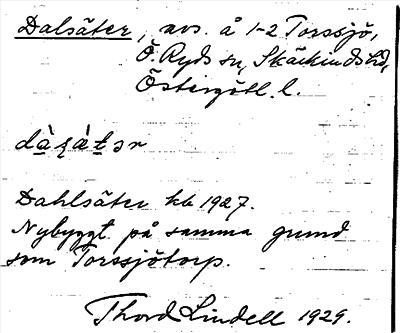 Dalsäter, avs. å 1-2 Torssjö,
Ö. Ryds sn, Skärkinds hd,
Östergötl. l.
Dahlsäter kb 1927.
Nybyggt på samma grund
som Torssjötorp.
Thord Lindell 1929.